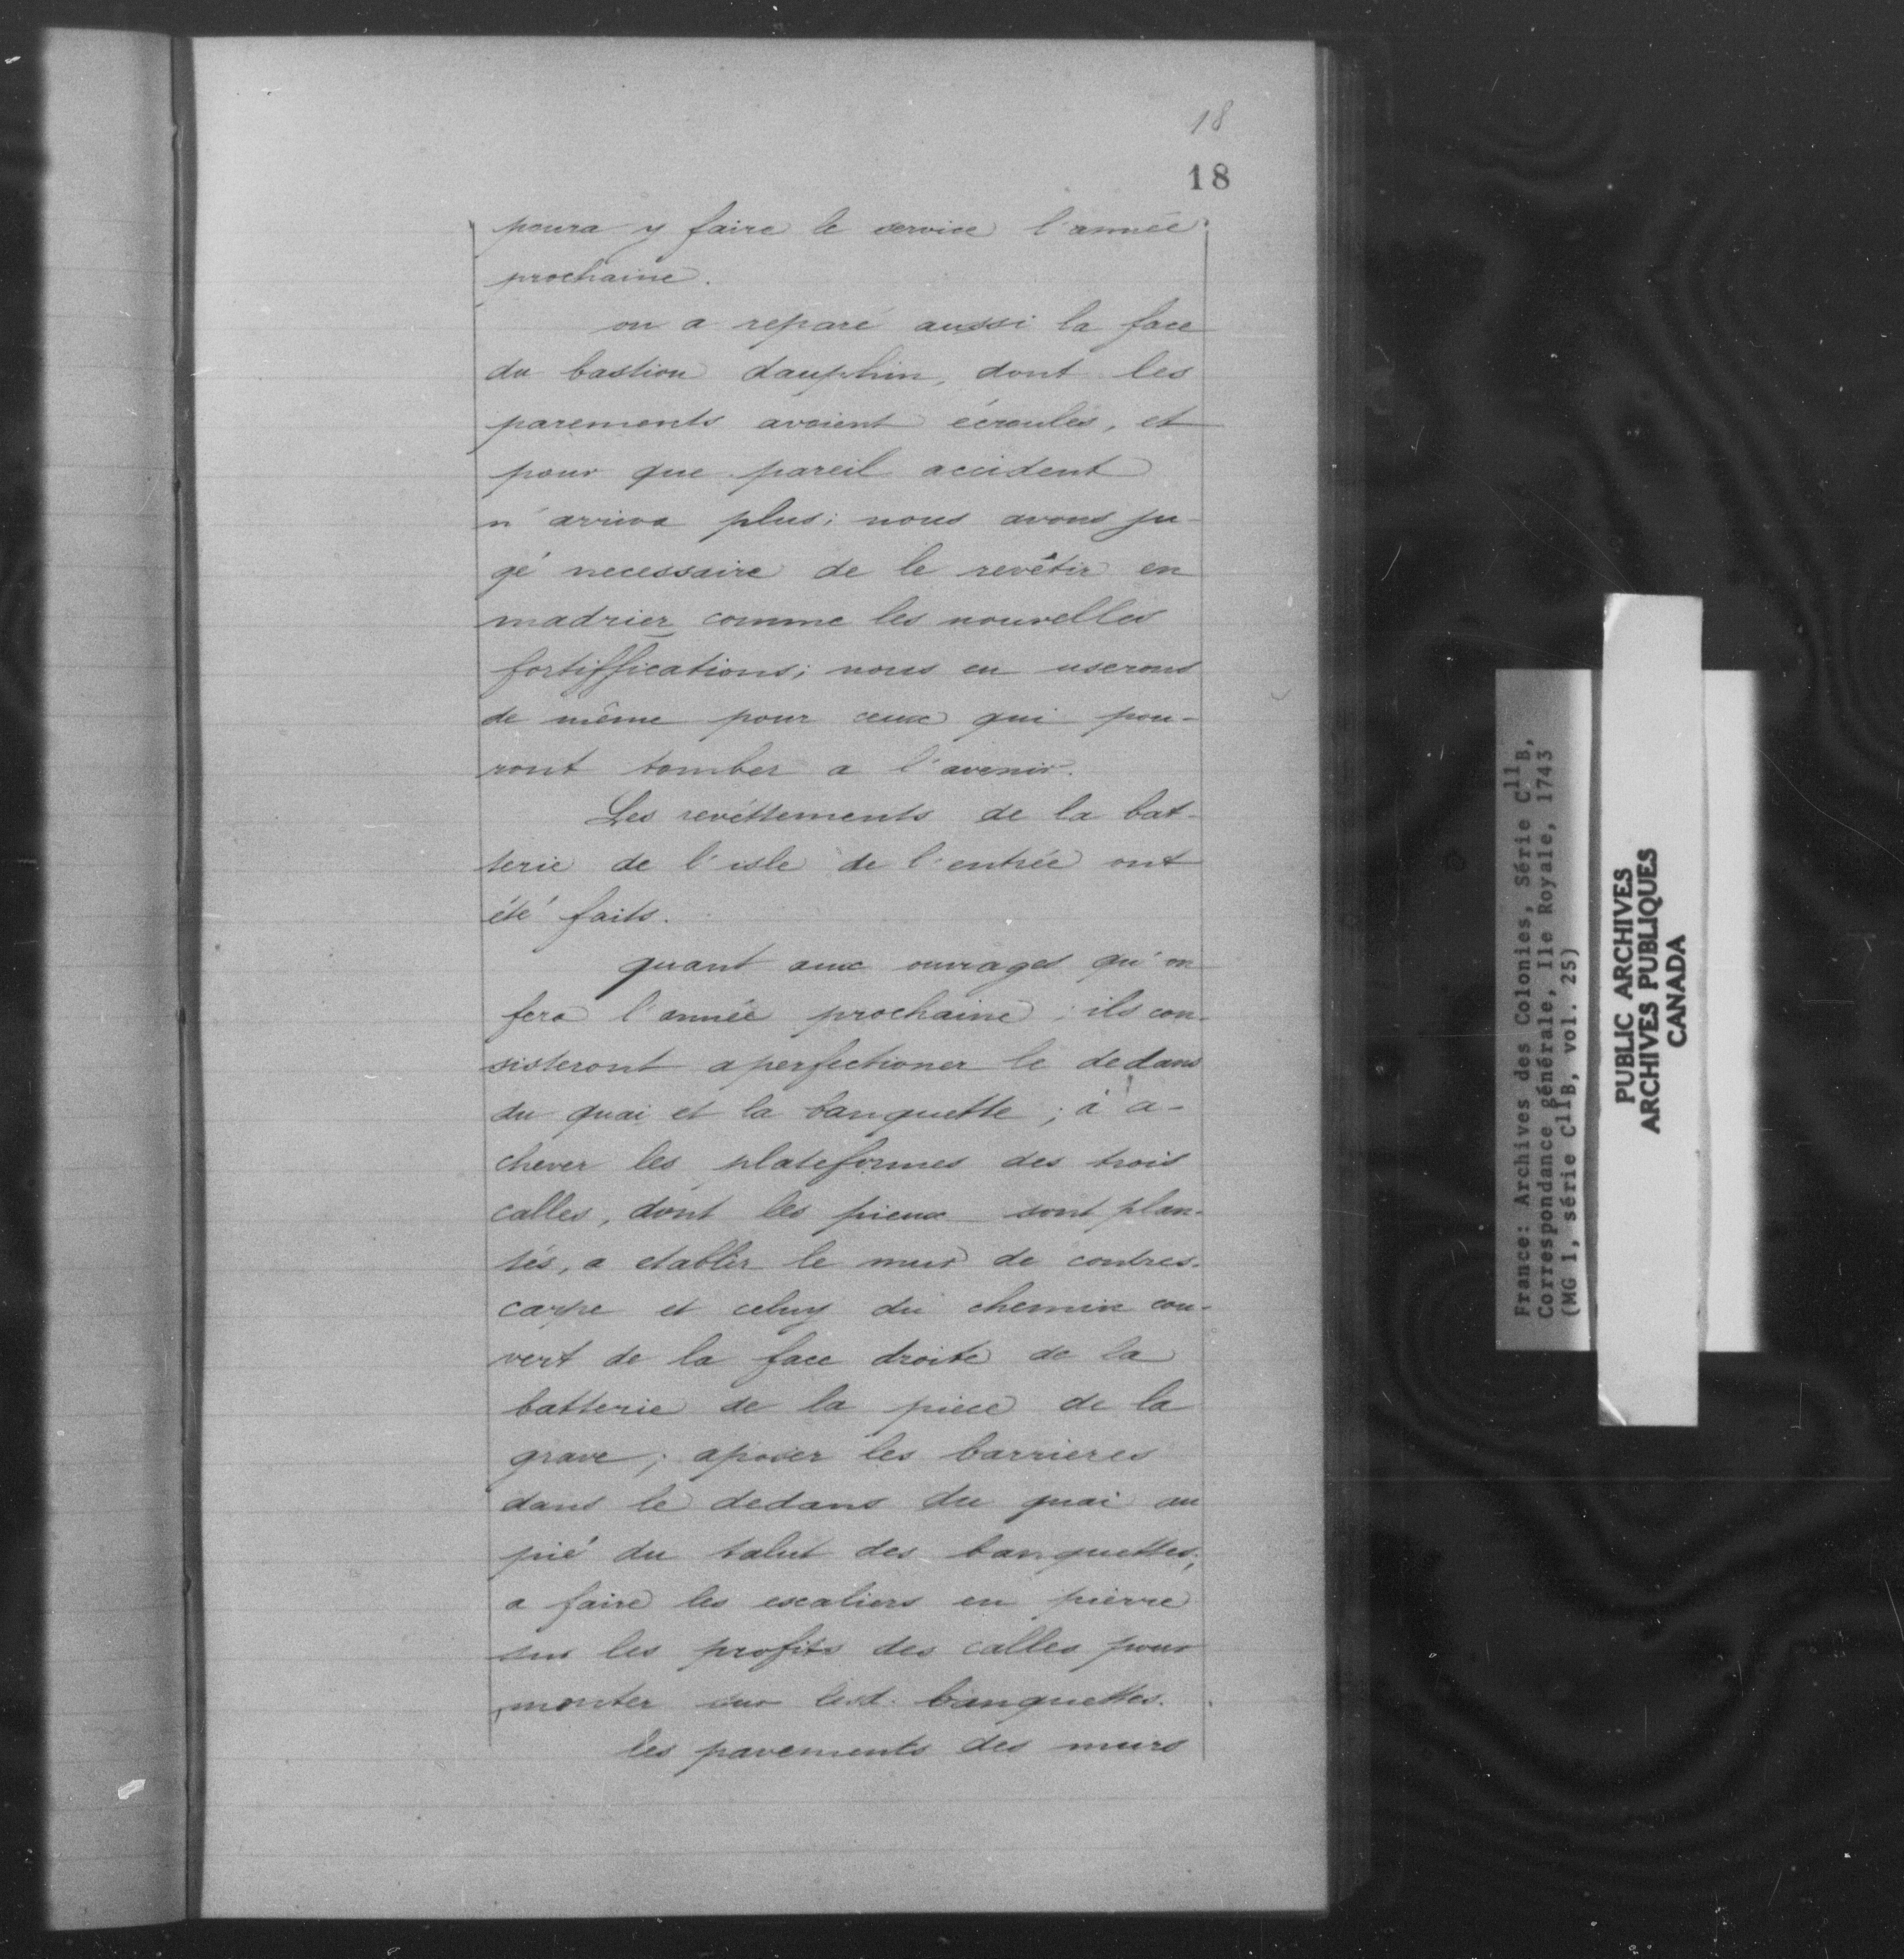 18
18
poura y faire le service l'année
prochaine.
on a reparé aussi la face
du bastion dauphin, dont les
parements avoient écroulés, et
pour que pareil accident
n'arriva plus; nous avons ju-
gé necessaire de le revêtir en
madrier comme les nouvelles
fortiffications; nous en userons
de même pour ceux qui pou-
ront tomber a l'avenir.
Les revêttements de la bat-
terie de l'isle de l'entrée ont
été faits.
quant aux ouvrages qu'on
fera l'année prochaine; ils con-
sisteront a perfectioner le dedans
du quai et la banquette; à a-
chever les plateformes des trois
calles, dont les pieux sont plan-
tés, a etablir le mur de contres-
carpe et celuy du chemin cou-
vert de la face droite de la
batterie de la piece de la
grave; aposer les barrieres
dans le dedans du quai au
pié du talut des banquettes;
a faire les escaliers en pierre
sur les profits des calles pour
monter sur lesd. banquettes.
les pavements des murs
France: Archives des Colonies, Série C11B,
Correspondance générale, Ile Royale, 1743
(MG 1, série C11B, vol. 25)
PUBLIC ARCHIVES
ARCHIVES PUBLIQUES
CANADA